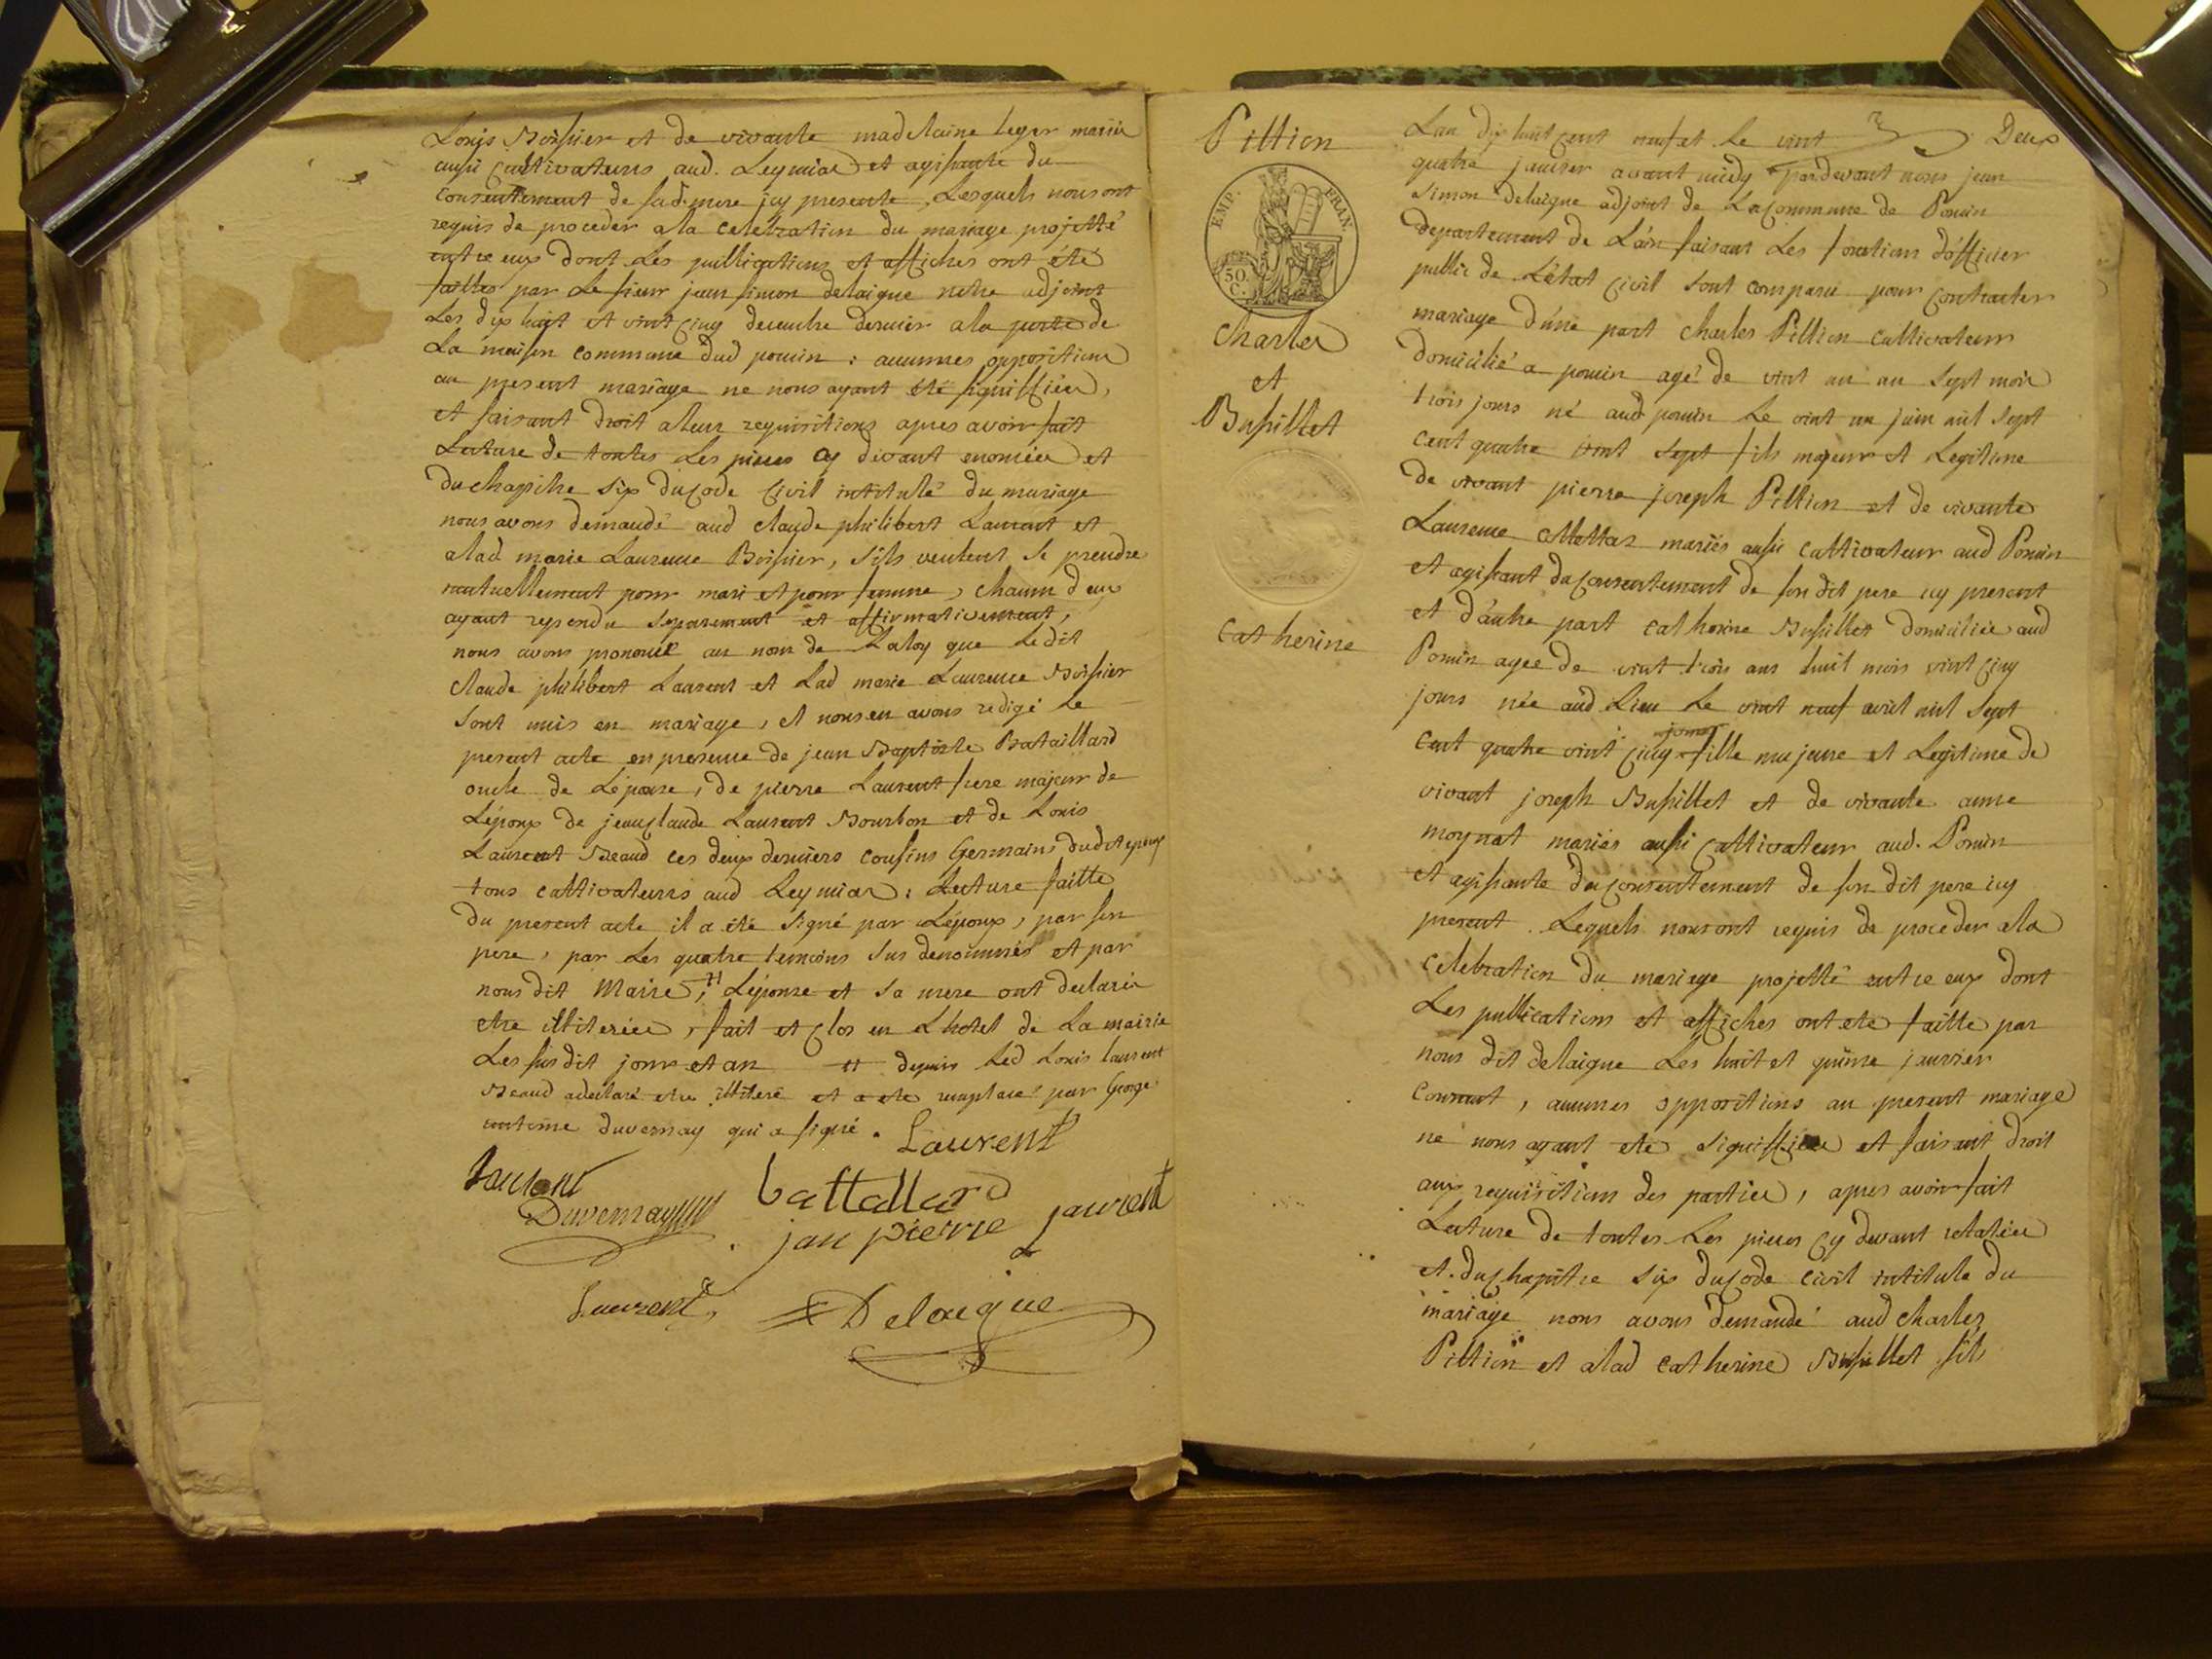 Louis Boissier et de vivante madelaine leger mariés
aussi cultivateurs aud. Leymiat et agissante du
consentement de sad. mere icy presente, Lesquels nous ont
requis de proceder ala celebration du mariage projetté
entre eux dont Les publications et affiches ont été
faittes par Le sieur jean simon delaigue notre adjoint
Les dix huit et vint cinq decembre dernier ala porte de
La maison commune dud poncin : aucunnes oppositions
au present mariage ne nous ayant été signiffiées,
et faisant droit aleur requisitions apres avoir fait
Lecture de toutes Les pieces cy devant enoncées et
du chapitre six du code civil intitulé du mariage
nous avons demandé aud claude philibert Laurent et
alad marie Laurence Boissier, s'ils veulent se prendre
mutuellement pour mari et pour femme, chacun d'eux
ayant repondu separement et affirmativement,
nous avons prononcé au nom de La loy que Le dit
claude philibert Laurent et Lad marie Laurence Boissier
sont unis en mariage, et nous en avons redigé Le
present acte en presence de jean Baptiste Bataillard
oncle de L'épouse, de pierre Laurent frere majeur de
L'époux de jean claude Laurent Bourbon et de Louis
Laurent Beaud ces deux derniers cousins Germains dudit epoux
tous cultivateurs aud Leymiat : Lecture faitte
du present acte il a été signé par L'époux, par son
pere, par Les quatre temoins sus denommés et par
nous dit Maire, # L'épouse et sa mere ont declarés
etre illiterées, fait et clos en L'hotel de La mairie
Les sus dit jour et an # depuis Led Louis laurent
Beaud a declaré etre illiteré et a eté remplacé par George
antoine duvernay qui a signé.
Laurent
Laurent
Duvernay
battallard
jan pierre laurent
Laurent
Delaigue
Pittion
EMP. FRAN.
50 C.
charles
et
Bussillet
catherine
Deux
Lan dix huit cent neuf et Le vint
quatre janvier avant midy Pardevant nous jean
simon delaigue adjoint de La commune de Poncin
departement de L'ain faisant Les fonctions d'officier
public de L'état civil sont comparu pour contracter
mariage d'une part charles Pittion cultivateur
domicilié a poncin agé de vint un an sept mois
trois jours né aud poncin Le vint un juin mil sept
cent quatre vint sept fils majeur et Legitime
de vivant pierre joseph Pittion et de vivante
Laurence Mottaz mariés aussi cultivateur aud Poncin
et agissant du consentement de son dit pere icy present
et d'autre part catherine Bussillet domiciliée aud
Poncin agée de vint trois ans huit mois vint cinq
jours née aud Lieu Le vint neuf avril mil sept
cent quatre vint cinq fille majeure et Legitime de
vivant joseph Bussillet et de vivante anne
moynat mariés aussi cultivateur aud. Poncin
et agissante du consentement de son dit pere icy
present. Lequels nous ont requis de proceder ala
celebration du mariage projetté entre eux dont
Les publications et affiches ont eté faitte par
nous dit delaigue Les huit et quinze janvier
courant, aucunnes oppositions au present mariage
ne nous ayant eté signiffiées et faisant droit
aux requisitions des parties, apres avoir fait
Lecture de toutes Les pieces cy devant relatées
et du chapitre six du code civil intitulé du
mariage nous avons demandé aud charles
Pittion et alad catherine Bussillet s'ils